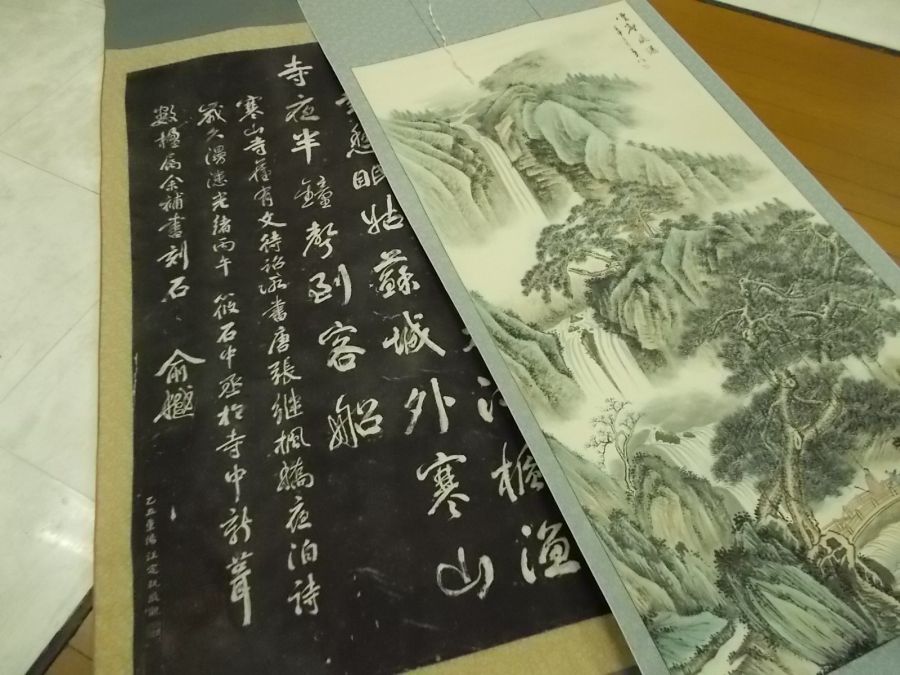 江楓漁
愁眠姑蘇城外寒山
寺夜半鐘聲到客船
寒山寺舊有文待詔所書唐張繼楓橋夜泊詩
歲久漫漶光緒丙午筱石中丞於寺中新葺
數楹屬余補書刻石 俞樾